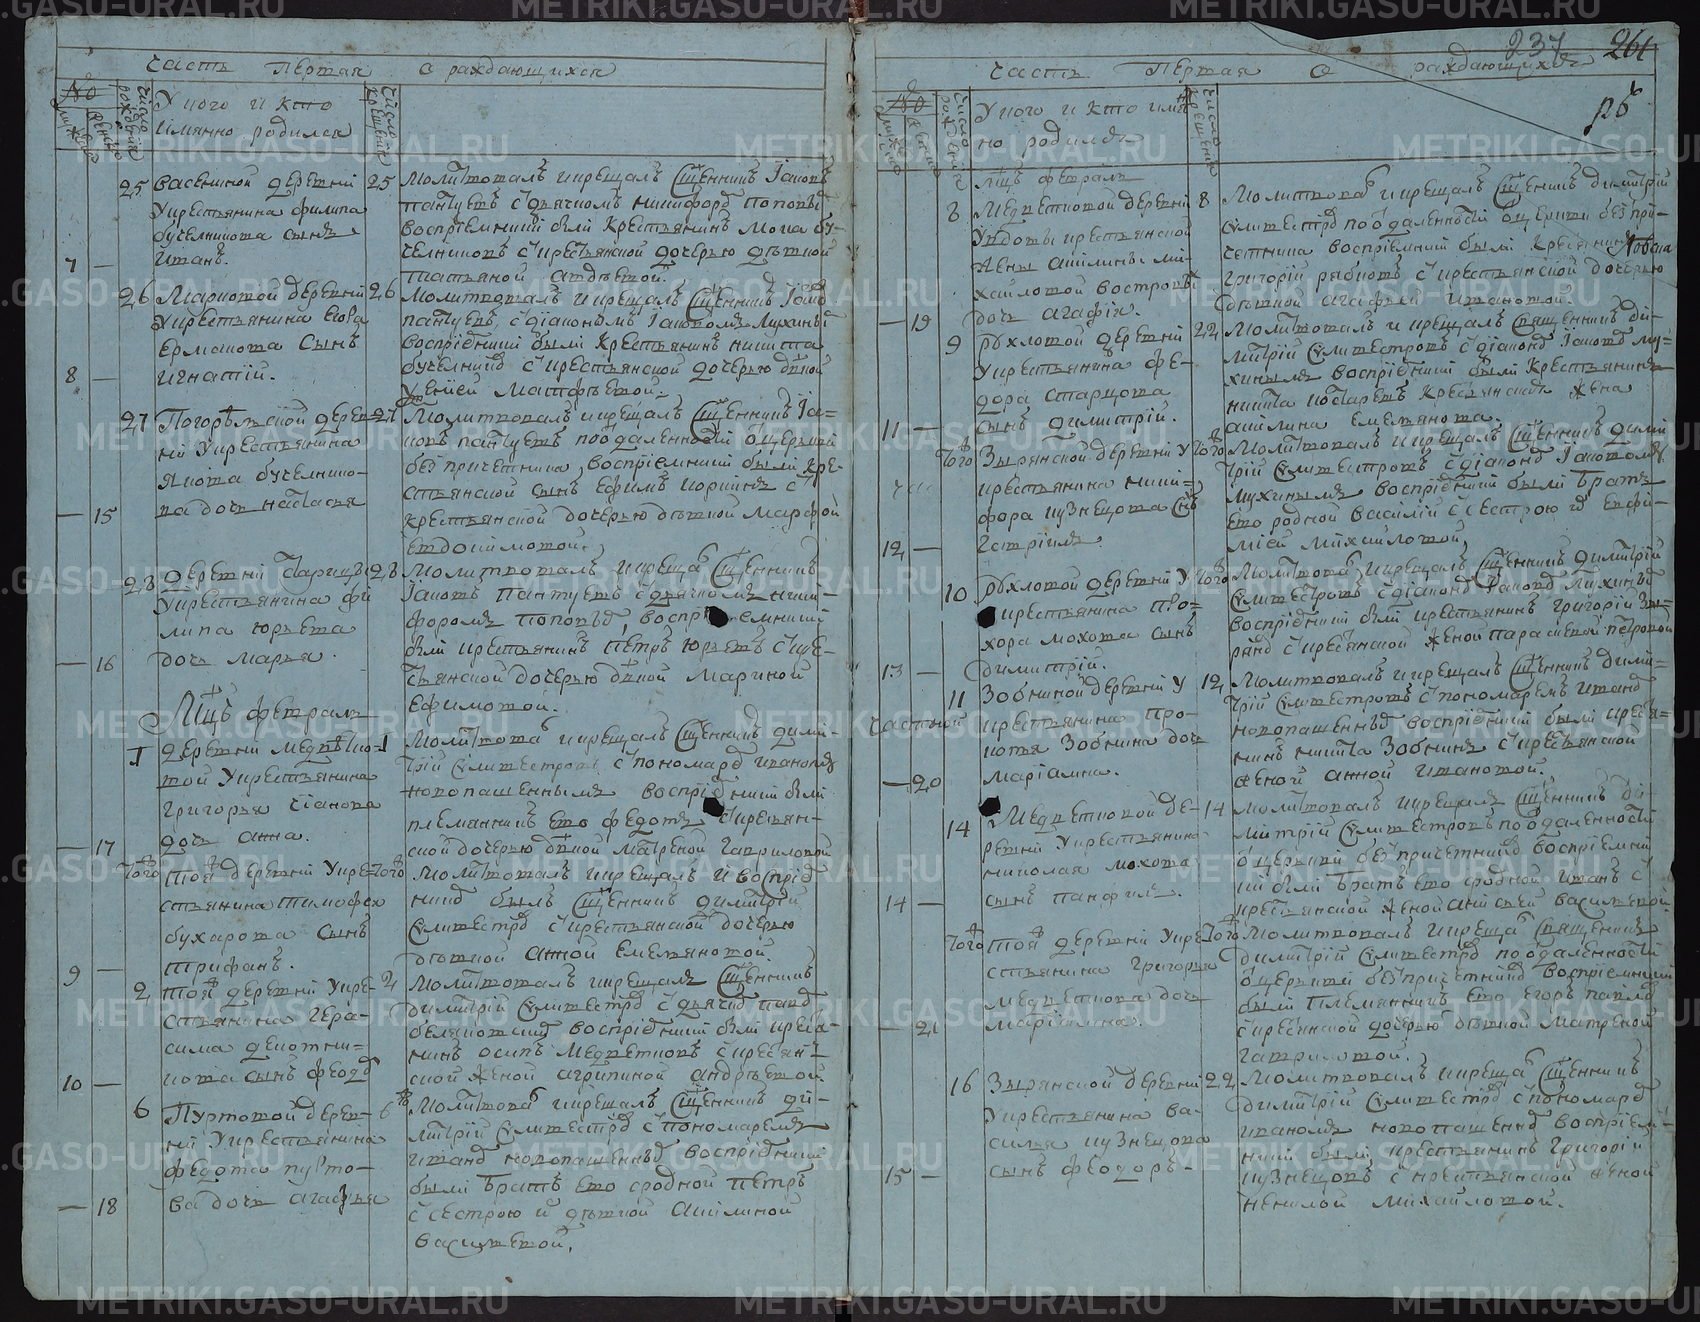 Часть Первая О раждающихся
№
мужеска
женска
число рождения
У кого и кто
имянно родился
число крещения
25 Васениной деревни 25
У крестьянина филипа
бучелникова сынъ
7 — Иванъ.
Молитвовалъ и крещалъ Сщенникъ Iаковъ
воспрiемники были Крестьянинъ
бучелниковъ с крестьянской дочерью девкой
татьяной авдеевой.
26 Марковой деревни 26
У крестьянина
Ермакова Сынъ
8 — Игнатiй.
Молитвовалъ и крещалъ Сщенникъ Iаковъ
с дiакономъ Iаковомъ Мухинымъ
воспрiемники были Крестьянинъ никита
с крестьянской дочерью девкой
матфеевой.
27 деревни 27
У крестьянина
Якова бучелнико-
— 15 ва дочь настасья
Молитвовалъ и крещалъ Сщенникъ Iа-
ковъ по отдаленности от церкви
без причетника, воспрiемники были кре-
стьянской сынъ Ефимъ с
крестьянской дочерью девкой марфой
евдокимовой.
28 деревни 28
У крестьянина фи
липа юрьева
— 16 дочь марья.
Молитвовалъ и креща Сщенникъ
Iаковъ с дьячкомъ ники-
форомъ поповымъ воспрiемники
были крестьянинъ петръ юрьевъ с кре-
стьянской дочерью девкой Мариной
Ефимовой.
Мцъ февраль
1 деревни медвед- 1
ковой У крестьянина
Григорья
— 17 дочь анна.
Молитвова и крещалъ Сщенникъ дими-
трiй Силивестровъ с пономаремъ иваномъ
новопашеннымъ воспрiемники были
племянникъ его федотъ с крестьян-
ской дочерью девкой Матреной Гавриловой
того тоя деревни У кре- того
стьянина тимофея
бухарова сынъ
9 — трифанъ.
Молитвовалъ и крещалъ и воспрiем-
никъ былъ Сщенникъ димитрiй
Силивестровъ с крестьянской дочерью
девкой анной Емельяновой.
2 тоя деревни У кре- 2
стьянина Гера-
сима
10 — сынъ феодоръ
Молитвовалъ и крещалъ Сщенникъ
димитрiй Силивестровъ с дьячкомъ
воспрiемники были крестья-
нинъ осипъ Медведковъ с крестьян-
ской женой агрипиной андреевой.
6 Пуртовой дерев- 6
ни У крестьянина
федота пурто-
— 18 ва дочь агафья
Молитвова и крещалъ Сщенникъ ди-
митрiй Силивестровъ с пономаремъ
иваномъ новопашеннымъ воспрiемники
были братъ его сродной петръ
с сестрою девкой Акилиной
василевой.
Часть Первая О раждающихся
237 261
№
мужеска
женска
число рождения
У кого и кто имян
но родился
число крещения
Мцъ февраль
8 Медведковой деревни 8
У вдовы крестьянской
жены акилины ми-
хайловой востровой
— 19 дочь агафiя.
Молитвова и крещалъ Сщенникъ димитрiй
Силивестровъ по отдаленности от церкви без при-
четника воспрiемники были Крестьянинъ
григорiй рябковъ с крестьянской дочерью
девкой агафьей ивановой.
9 рыхловой деревни 22
У крестьянина фе-
дора старцова
11 — сынъ димитрiй.
Молитвовалъ и крещалъ Священникъ ди-
митрiй Силивестровъ с дiакономъ Iаковомъ Му-
хинымъ воспрiемники были Крестьянинъ
никита с Крестьянская жена
акилина емельянова.
того Зырянской деревни У того
крестьянина ники-
фора кузнецова сынъ
12 — Гаврiилъ
Молитвовалъ и крещалъ Сщенникъ дими
трiй Силивестровъ с дiакономъ Iаковомъ
мухинымъ воспрiемники были братъ
его родной василiй с сестрою его евфи-
мiей Михайловой.
10 рыхловой деревни У того
крестьянина про-
хора мохова сынъ
13 — димитрiй.
Молитвова и крещалъ Сщенникъ димитрiй
Силивестровъ с дiакономъ Iаковомъ Мухинымъ
воспрiемники были крестьянинъ григорiй
с крестьянской женой парасковой петровой
11 Зобниной деревни У 12
крестьянина про-
копья Зобнина дочь
— 20 марiамна.
Молитвовалъ и крещалъ Сщенникъ дими-
трiй Силивестровъ с пономаремъ иваномъ
новопашеннымъ воспрiемники были кресья-
нинъ никита Зобнинъ с крестьянской
женой анной ивановой.
14 Медведковой де- 14
ревни У крестьянина
николая мохова
14 — сынъ панфилъ.
Молитвовалъ и крещалъ Сщенникъ ди-
митрiй Силивестровъ по отдаленности
от церкви без причетника воспрiемни
ки были братъ его сродной иванъ с
крестьянской женой анисьей васильевой
того тоя деревни У кре того
стьянина григорья
медведкова дочь
— 21 марiамна.
Молитвовалъ и креща Священникъ
димитрiй Силивестровъ по отдаленности
от церкви без причетника воспрiемники
были племянникъ его егоръ павловъ
с кресьянской дочерью девкой Матреной
гавриловой.
16 Зырянской деревни 22
У крестьянина ва-
силья кузнецова
15 — сынъ феодоръ.
Молитвовалъ и креща Сщенникъ
димитрiй Силивестровъ с пономаремъ
иваномъ новопашеннымъ воспрiем-
ники были крестьянинъ Григорiй
кузнецовъ с крестьянской женой
ненилой михайловой.
METRIKI.GASO-URAL.RU